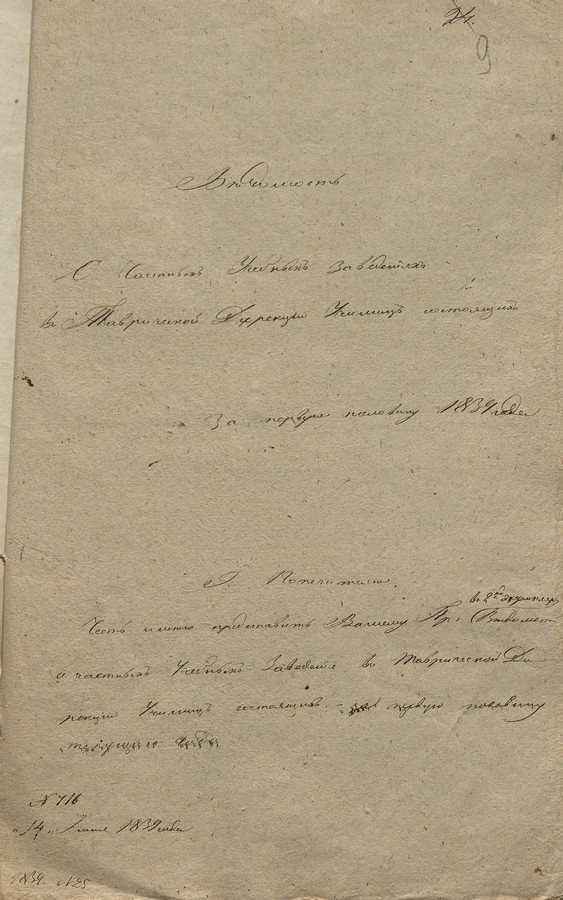 24.
9
Вѣдомость
О Частныхъ Учебныхъ Заведеніяхъ
въ Таврической Дирекціи Училищъ состоящихъ
За первую половину 1839 года
Г. Попечителю.
въ 2хъ экземпляр
Честь имѣю представить Вашему Пр. Вѣдомость
о частныхъ Учебныхъ Заведеніяхъ въ Таврической Ди
рекціи Училищъ состоящихъ. – за первую половину
текущаго года
N 716
14 1839 года
1839. N 25